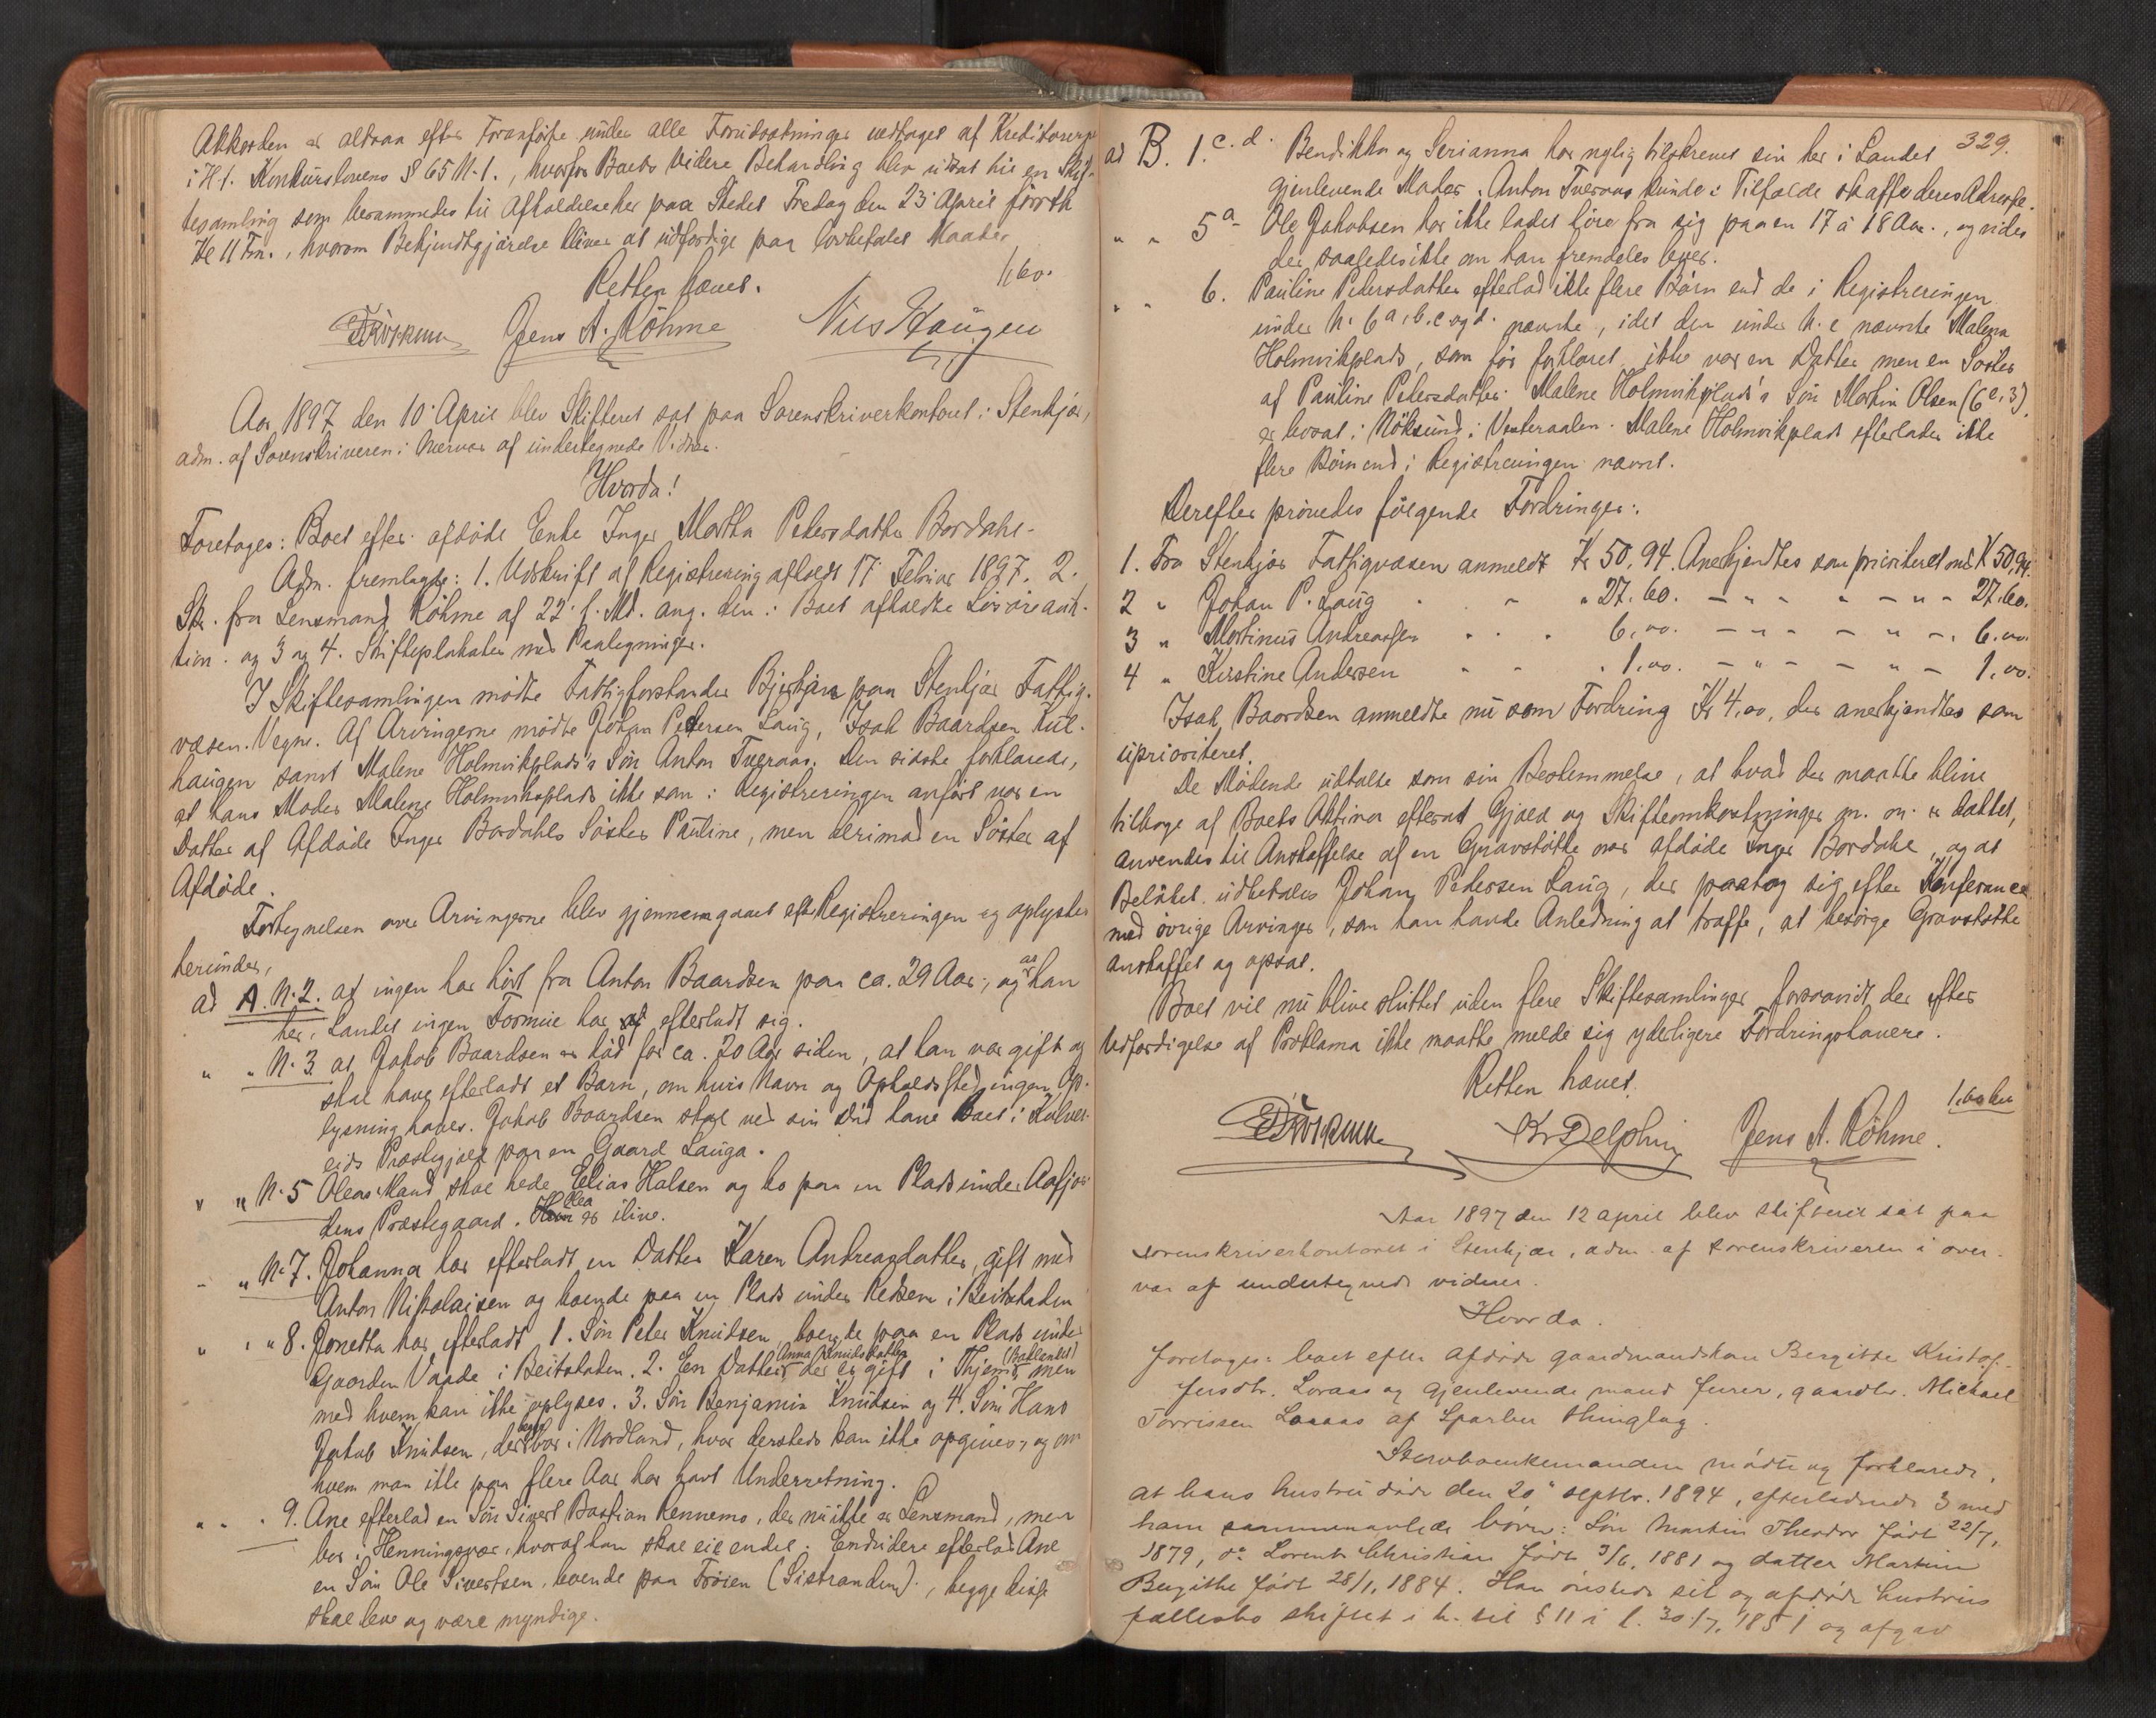 Akkorden er altsaa efter Foranførte under alle Forudsætninger vedtaget af Kreditorerne
i H. t. Konkurslovens § 65 N. 1., hvorfor Boets videre Behandling blev udsat til en Skif-
tesamling som berammedes til Afholdelse her paa Stedet Fredag den 23' April førstk
Kl 11 Fm., hvorom Bekjendtgjørelse bliver at udfærdige paa lovbefalet Maade.
Retten hævet.
1,60.
Jens A. Röhme Nils Haugen
Aar 1897 den 10' April blev Skifteret sat paa Sorenskriverkontoret i Stenkjær,
adm. af Sorenskriveren i Nærvær af undertegnede Vidner.
Hvorda!
Foretages: Boet efter afdøde Enke Inger Martha Pedersdatter Bordahl-
Adm. fremlagde: 1. Udskrift af Registrering afholdt 17' Februar 1897. 2.
Sk. fra Lensmand Röhme af 22' f. Md. ang. den i Boet afholdte Løsøreauk-
tion. og 3 og 4. Skifteplakater med Paategninger.
I Skiftesamlingen mødte Fattigforstander Bjerkjær paa Stenkjær Fattig-
væsens Vegne. Af Arvingerne mødte Johan Petersen Laug, Isak Baardsen Kul-
haugen samt Malene Holmvikplads's Søn Anton Tveraas. Den sidste forklarede,
at hans Moder Malene Holmviksplads ikke som i Registreringen anført var en
Datter af Afdøde Inger Bordahls Søster Pauline, men derimod en Søster af
Afdøde.
Fortegnelsen over Arvingerne blev gjennemgaaet efter Registreringen og oplystes
herunder,
ad A. N. 2. at ingen har hørt fra Anton Baardsen paa ca. 29 Aar, og at han
her i Landet ingen Formue har efterladt sig.
" " N. 3 at Jakob Baardsen er død for ca. 20 Aar siden, at han var gift og
skal have efterladt et Barn, om hvis Navn og Opholdssted ingen Op-
lysning haves. Jakob Baardsen skal ved sin Død have boet i Kolver-
eids Præstegjæld paa en Gaard Lauga.
" " N. 5 Oleas Mand skal hede Elias Halsen og bo paa en Plads under Aafjor-
dens Præstegaard. Olea er ilive.
" " N. 7. Johanna har efterladt en Datter Karen Andreasdatter, gift med
Anton Nikolaisen og boende paa en Plads under Redsem i Beitstaden
" " " 8. Jonetta har efterladt 1. Søn Peter Knudsen, boende paa en Plads under
Gaarden Vaade i Beitstaden. 2. En Datter Anna Knudsdatter der er gift i Thjemø (Baklandet) men
med hvem kan ikke oplyses. 3. Søn Benjamin Knudsen og 4. Søn Hans
Jakob Knudsen, der begge bor i Nordland, hvor dersteds kan ikke opgives, og om
hvem man ikke paa flere Aar har havt Underretning.
" " " 9. Ane efterlod en Søn Sivert Bastian Rennemo, der nu ikke er Lensmand, men
bor i Henningsvær, hvoraf han skal eie endel. Endvidere efterlod Ane
en Søn Ole Sivertsen, boende paa Frøien (Sistranden), begge disse
skal leve og være myndige.
329.
ad B. 1. c. d. Bendikka og Serianna har nylig tilskrevet sin her i Landet
gjenlevende Moder. Anton Tveraas kunde i Tilfælde skaffe deres Adresse.
" " 5 a- Ole Jakobsen har ikke ladet høre fra sig paa en 17 à 18 Aar., og vides
det saaledes ikke om han fremdeles lever.
" " 6. Pauline Pedersdatter efterlod ikke flere Børn end de i Registreringen
under N. 6 a, b, c og d. nævnte, idet den under N. e nævnte Malena
Holmvikplads, som før forklaret, ikke var en Datter men en Søster
af Pauline Pedersdatter. Malene Holmvikplads's Søn Martin Olsen (6 e, 3)
er bosat i Nöksund i Vesteraalen. Malene Holmvikplads efterlader ikke
flere Børn end i Registreringen nævnt.
Derefter prøvedes følgende Fordringer:
1. Fra Stenkjær Fattigvæsen anmeldt Kr 50,94. Anerkjendtes som prioriteret med K 50,94.
2 " Johan P. Laug " " " 27.60. - " - " - " - 27.60.
3 " Martinus Andreassen " " " 6,00. - " - - " - 6.00.
4 " Kirstine Andersen " " " 1,00. - " - - " - 1,00.
Isak Baardsen anmeldte nu som Fordring Kr 4,00, der anerkjendtes som
uprioriteret.
De Mødende udtalte som sin Bestemmelse, at hvad der maatte blive
tilbage af Boets Aktiva efterat Gjæld og Skifteomkostninger m. m. er dækket,
anvendes til Anskaffelse af en Gravstøtte over afdøde Inger Bordahl, og at
Beløbet udbetales Johan Pedersen Laug, der paatog sig efter Konference
med øvrige Arvinger, som han havde Anledning at træffe, at besørge Gravstøtte
anskaffet og opsat.
Boet vil nu blive sluttet uden flere Skiftesamlinger forsaavidt der efter
Udfærdigelse af Proklama ikke maatte melde sig yderligere Fordringshavere.
Retten hævet.
Kr Delphin Jens A. Röhme.
Aar 1897 den 12 april blev skifteret sat paa
sorenskriverkontoret i Stenkjær, adm. af sorenskriveren i over-
vær af undertegnede vidner.
Hvorda.
Foretages: boet efter afdøde gaardmandskone Bergitte Kristof-
fersdtr. Loraas og gjenlevende mand furer, gaardbr. Michael
Torrissen Loraas af Sparbu thinglag.
Stervboenkemanden mødte og forklarede,
at hans hustru døde den 20' septbr. 1894, efterladende 3 med
ham sammenavlede børn: Søn Martin Theodor født 22/7,
1879, do Lorents Christian født 3/6, 1881 og datter Martine
Bergithe født 28/1, 1884. Han ønskede sit og afdøde hustrus
fællesbo skiftet i h. til § 11 i l. 30/7, 1851 og afgav